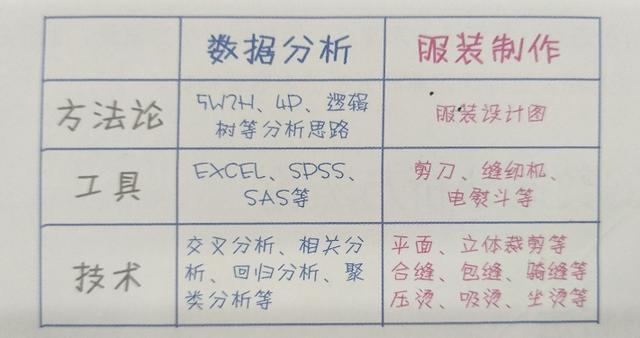 数据分析 服装制作
方法论 5W2H、4P、逻辑 服装设计图
树等分析思路
工具 EXCEL、SPSS、 剪刀、缝纫机、
SAS等 电熨斗等
技术 交叉分析、相关分 平面、立体裁剪等
析、回归分析、聚 合缝、包缝、骑缝等
类分析等 压烫、吸烫、坐烫等